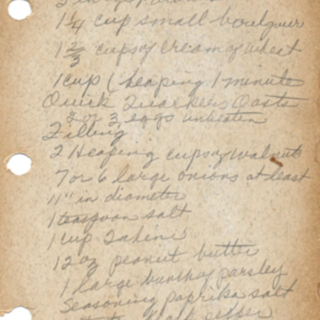 1 1/4 cup small bourlguier
1 2/3 cups of cream of wheat
1 cup (heaping 1 minute
Quick Quarkers Oats
2 or 3 eggs unbeaten
Filling
2 Heaping cups of walnuts
7 or 6 large onions at least
11" in diameter
1 teaspoon salt
1 cup Tahini
12 oz peanut butter
1 large bunch of parsley
Seasoning paprika salt
pepper